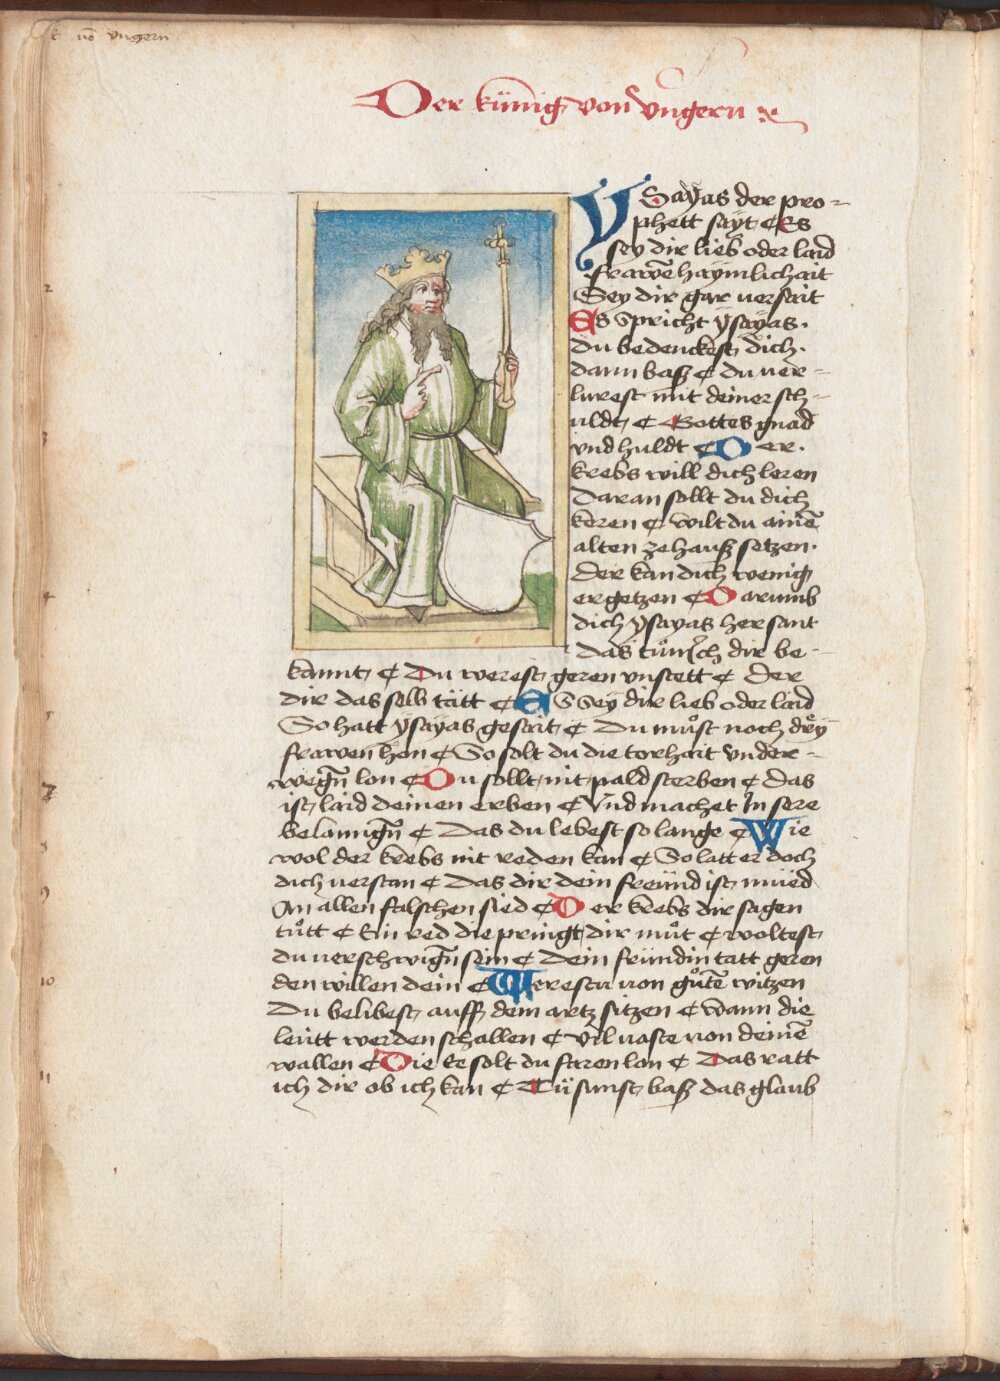 vngern
Der künig von vngern x
YSayas der pro-
phett sayt ¢ Es
sey dir lieb oder laid
frawē haymlichait
Sey dir gar uersait
Es Spricht ÿsayas.
du bedenckest dich.
dann baß ¢ du uer-
lurest mit deiner sch-
uldt ¢ Gottes gnad
vnd huldt ¢ Der.
krebs will dich leren
Daran sollt du dich
keren ¢ wilt du ainē
alten ze hauß setzen.
der kan dich wenig
ergetzen ¢ Darumb
dich ysayas her sant
das er dir be-
kannt ¢ Du werest geren vnstett ¢ der
dir das selb tätt ¢ ES Sey dir lieb oder laid
So hatt ÿsayas gesait ¢ Du muͦst noch drÿ
frawen hon ¢ So solt du die torhait vnder-
wegn̄ lon ¢ Du sollt nit pald sterben ¢ das
ist laid deinen erben ¢ Vnd machet In sere
belanngn̄ ¢ Das du lebest so lange ¢ Wie
wol der krebs nit reden kan ¢ So latt er doch
dich uerstan ¢ Das dir dein freünd ist müed
An allen falschen sied ¢ Der krebs dir sagen
tuͦtt ¢ Ein red die pringt dir muͦt ¢ woltest
du uerschwign̄ sein ¢ Dein fründin tätt geren
den willen dein ¢ Werestu von guͦtē witzen
Du belibest auff dem artz sitzen ¢ wann die
leütt werden schallen ¢ Vil uaste uon deinē
wallen ¢ Die Ee solt du faren lon ¢ Das ratt
ich dir ob ich kan ¢ Tü sunst baß das glaub
2
3
4
5
7
8
9
10
11